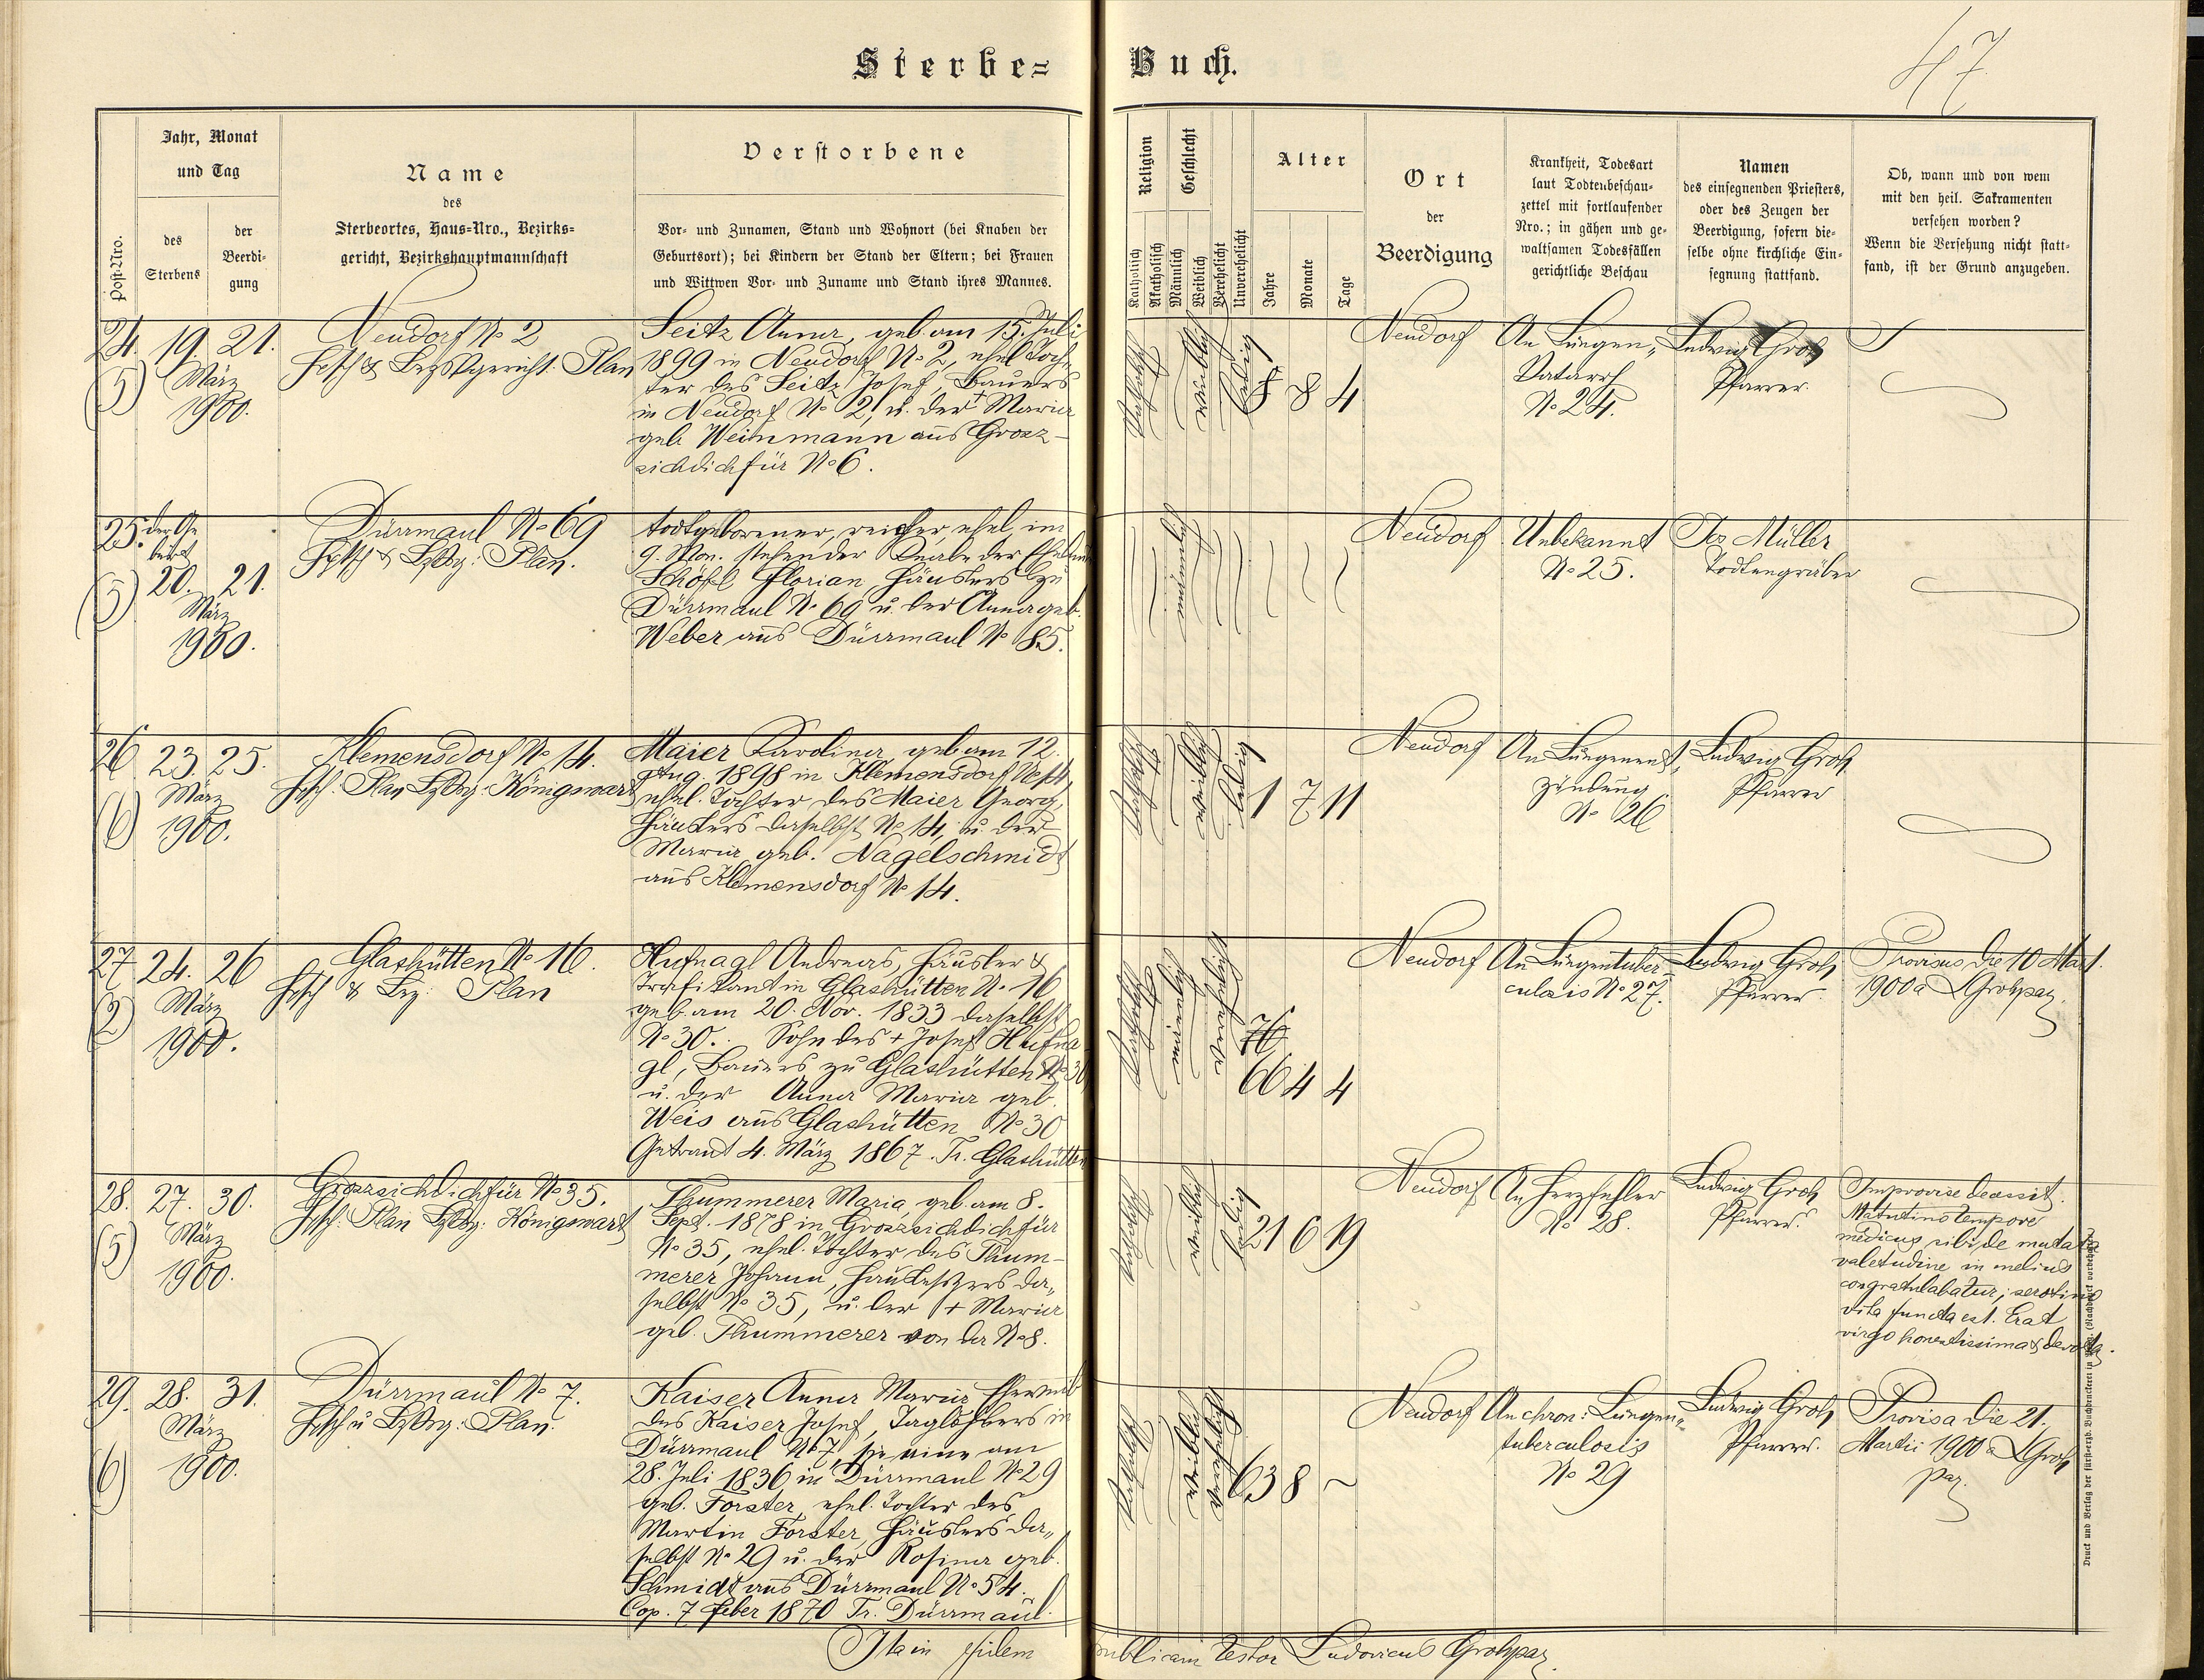 47
Sterbe= Buch.
Post-Nro.
Jahr, Monat
und Tag
des
Sterbens
der
Beerdi-
gung
Name
des
Sterbeortes, Haus=Nro., Bezirks=
gericht, Bezirkshauptmannschaft
Verstorbene
Vor= und Zunamen, Stand und Wohnort (bei Knaben der
Geburtsort); bei Kindern der Stand der Eltern; bei Frauen
und Wittwen Vor= und Zuname und Stand ihres Mannes.
Religion
Katholisch
Akatholisch
Geschlecht
Männlich
Weiblich
Verehelicht
Unverehelicht
Alter
Jahre
Monate
Tage
Ort
der
Beerdigung
Krankheit, Todesart
laut Todtenbeschau=
zettel mit fortlaufender
Nro.; in gähen und ge=
waltsamen Todesfällen
gerichtliche Beschau
Namen
des einsegnenden Priesters,
oder des Zeugen der
Beerdigung, sofern die=
selbe ohne kirchliche Ein=
segnung stattfand.
Ob, wann und von wem
mit den heil. Sakramenten
versehen worden?
Wenn die Versehung nicht statt=
fand, ist der Grund anzugeben.
24. 19. 21.
(5) März
1900.
Neudorf No 2
Plan
Seitz Anna, geb. am 15. Juli
1899 in Neudorf No 2, ehel. Toch-
ter des Seitz Josef, Bauers
in Neudorf No 2, u. der + Maria
geb. Weinmann aus Grosz-
sichdichfür No 6.
Katholisch
weiblich
ledig
8 4
Neudorf
An Lungen-
Katarrh
No 24.
Ludwig Groh
Pfarrer.
25. der Ge
burt
20. 21.
(5) März
1900.
Dürrmaul No 69
Plan.
todtgeborener, ehel. im
9. Mon. stehender Knabe der
Florian, Häuslers zu
Dürrmaul No 69 u. der Anna geb.
Weber aus Dürrmaul No 85.
männlich
Neudorf
Unbekannt
No 25.
Jos Müller
Todtengräber
26 23. 25.
(6) März
1900.
Klemensdorf No 14.
Plan Königswart
Maier Karolina, geb. am 12.
Aug. 1898 in Klemensdorf No 14,
ehel. Tochter des Maier Georg,
Häuslers daselbst No 14, u. der
Maria geb. Nagelschmidt
aus Klemensdorf No 14.
Katholisch
weiblich
ledig
1 7 11
Neudorf
An Lungenent-
zündung
No 26
Ludwig Groh
Pfarrer
27 24. 26
(2) März
1900.
Glashütten No 16.
Plan
Hufnagl Andreas, Häusler &
Trafikant in Glashütten No 16
geb. am 20. Nov. 1833 daselbst
No 30. Sohn des + Josef Hufna
gl, Bauers zu Glashütten No 30
u. der Anna Maria geb.
Weis aus Glashütten No 30
Getraut 4. März 1867. Tr. Glashütten
Katholisch
männlich
verehelicht
76
66 4 4
Neudorf
An Lungentuber-
culosis No 27.
Ludwig Groh
Pfarrer.
Provisus die 10 Mart.
1900 a LGrohpar.
28. 27. 30.
(5) März
1900.
Groszsichdichfür No 35.
Plan Königswart
Thummerer Maria, geb. am 8.
Sept. 1878 in Groszsichdichfür
No 35, ehel. Tochter des Thum-
merer Johann, Hausbesitzers da-
selbst No 35, u. der + Maria
geb. Thummerer von da No 8.
Katholisch
weiblich
ledig
21 6 19
Neudorf
An Herzfehler
No 28.
Ludwig Groh
Pfarrer.
Improvise decessit.
Matutino tempore
medicus sibi de mutata
valetudine in melius
congratulabatur; serotino
vita functa est. Erat
virgo honestissima & devota.
29. 28. 31.
(6) März
1900.
Dürrmaul No 7.
Plan.
Kaiser Anna Maria, Eheweib
des Kaiser Josef, Taglöhners in
Dürrmaul No 7, sie eine am
28. Juli 1836 in Dürrmaul No 29
geb. Forster, ehel. Tochter des
Martin Forster, Häuslers da-
selbst No 29 u. der Rosina geb.
Schmidt aus Dürrmaul No 54.
Cop. 7 Feber 1870 Tr. Dürrmaul.
Katholisch
weiblich
verehelicht
63 8 ~
Neudorf
An chron. Lungen-
tuberculosis
No 29
Ludwig Groh
Pfarrer.
Provisa die 21.
Martii 1900 a LGroh
par.
Ita in fidem publicam testor Ludovicus Grohpar.